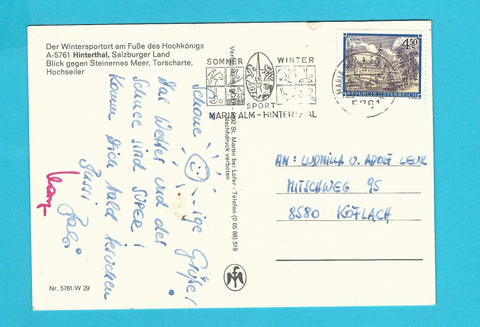 Der Wintersportort am Fuße des Hochkönigs
A-5761 Hinterthal, Salzburger Land
Blick gegen Steinernes Meer, Torecharte,
Hochseiler
SOMMER WINTER
SPORT
MARIA ALM - HINTERTHAL
5761
4.50
REPUBLIK ÖSTERREICH
Schöne ige Grüße!
Das Wetter und der
Schnee sind SUPER!
Komm Dich bald besuchen
Bussi
St. Martin bei Lofer - Telefon (0 65 88) 519
Nachdruck verboten
AN: LUDMILLA U. ADOLF LEUK
MITSCHWEG 95
8580 KÖFLACH
Nr. 5761/W 29